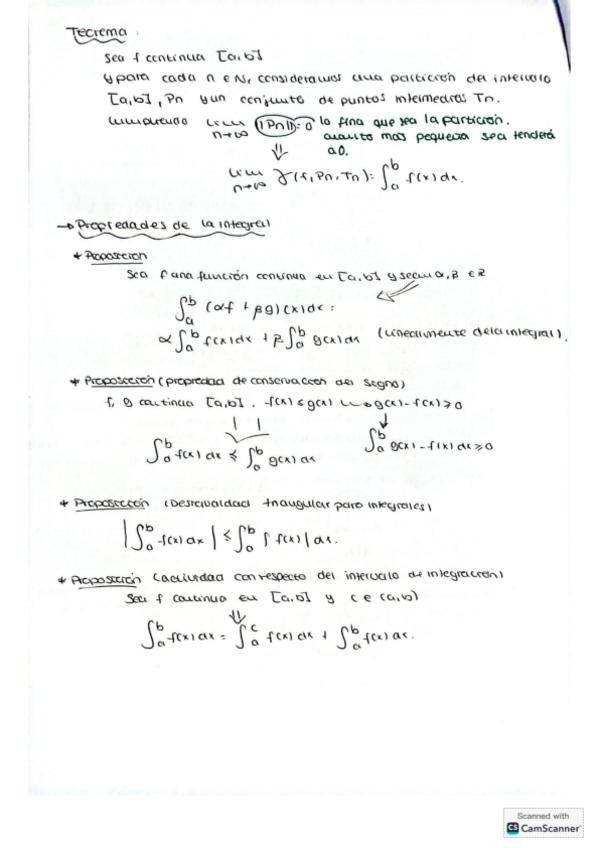 Teorema
Sea f continua [a,b]
y para cada n ∈ N, consideramos una partición del intervalo
[a,b], Pn y un conjunto de puntos intermedios Tn.
cumpliendo lim n→∞ ||Pn||=0 lo fina que sea la partición.
cuanto mas pequeña sea tenderá
a 0.
⇓
lim n→∞ γ(f,Pn,Tn)= ∫_a^b f(x)dx.
→ Propiedades de la integral
* Proposición
Sea f una función continua en [a,b] y sean α,β ∈ R
∫_a^b (αf + βg)(x)dx =
α∫_a^b f(x)dx + β∫_a^b g(x)dx (Linealmente de la integral).
* Proposición (propiedad de conservacion del signo)
f, g continua [a,b]. f(x) ≤ g(x) g(x)-f(x) ≥ 0
∫_a^b f(x)dx ≤ ∫_a^b g(x)dx ∫_a^b g(x)-f(x)dx ≥ 0
* Proposición (Desigualdad triangular para integrales)
|∫_a^b f(x)dx| ≤ ∫_a^b |f(x)|dx.
* Proposición (actividad con respecto del intervalo de integración)
Sea f continua en [a,b] y c ∈ (a,b)
⇓
∫_a^b f(x)dx = ∫_a^c f(x)dx + ∫_a^b f(x)dx.
Scanned with
CS CamScanner